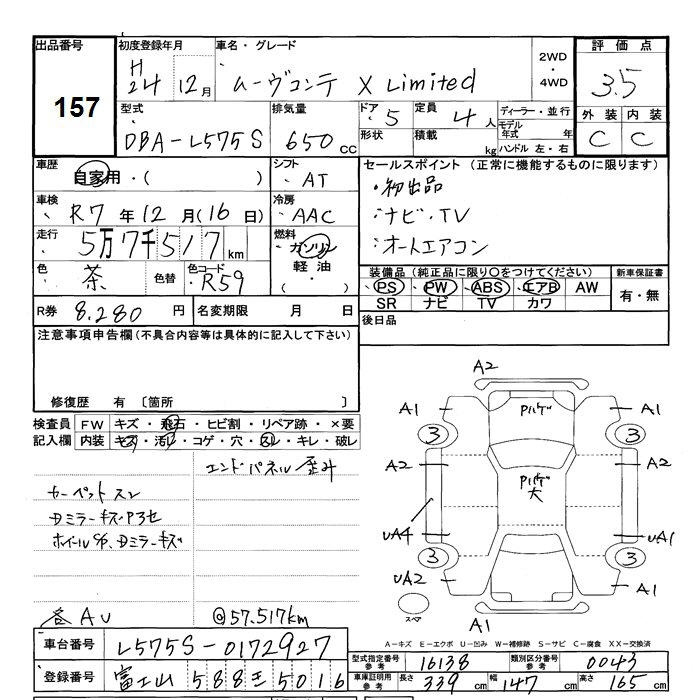 出品番号
157
初度登録年月
H
24 12月
車名・グレード
ムーヴコンテ X Limited
2WD
・
4WD
評価点
3.5
型式
DBA-L575S
排気量
650cc
ドア
5
定員
4人
ディーラー・並行
モデル年式 年
形状
積載 kg
ハンドル 左・右
外装 内装
C C
車歴
自家用・( )
シフト
AT
セールスポイント (正常に機能するものに限ります)
・初出品
・ナビ・TV
・オートエアコン
車検
R7年12月(16日)
冷房
AAC
走行
5万7千517km
燃料
ガソリン
軽油
( )
色
茶
色替
色コード
R59
装備品 (純正品に限り○をつけてください)
新車保証書
PS PW ABS エアB AW
SR ナビ TV カワ
有・無
R券 8,280円
名変期限 月 日
後日品
注意事項申告欄(不具合内容等は具体的に記入して下さい)
修復歴 有 〔箇所
検査員記入欄
FW キズ・飛石・ヒビ割・リペア跡・×要
内装 キズ・汚レ・コゲ・穴・スレ・キレ・破レ
エンドパネル歪み
カーペットスレ
ホイール
@57.517km
A2
A1 A1
3 3
A2 A2
UA4 UA1
3 3
UA2 A1
A1
スペア
A-キズ E-エクボ U-凹み W-補修跡 S-サビ C-腐食 XX-交換済
車台番号 L575S-0172927
型式指定番号 参考 16138
類別区分番号 参考 0043
登録番号 富士山 588 5016
車庫証明用 参考 長さ 339cm 幅 147cm 高さ 165cm